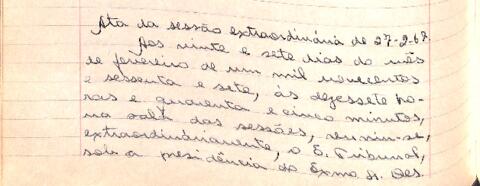 Ata da sessão extraordinária de 27-2-67.
Aos vinte e sete dias do mês
de fevereiro de um mil novecentos
e sessenta e sete, às dezessete ho-
ras e quarenta e cinco minutos,
na sala das sessões, reuniu-se,
extraordinàriamente, o E. Tribunal,
sob a presidência do Exmo. Sr. Des.